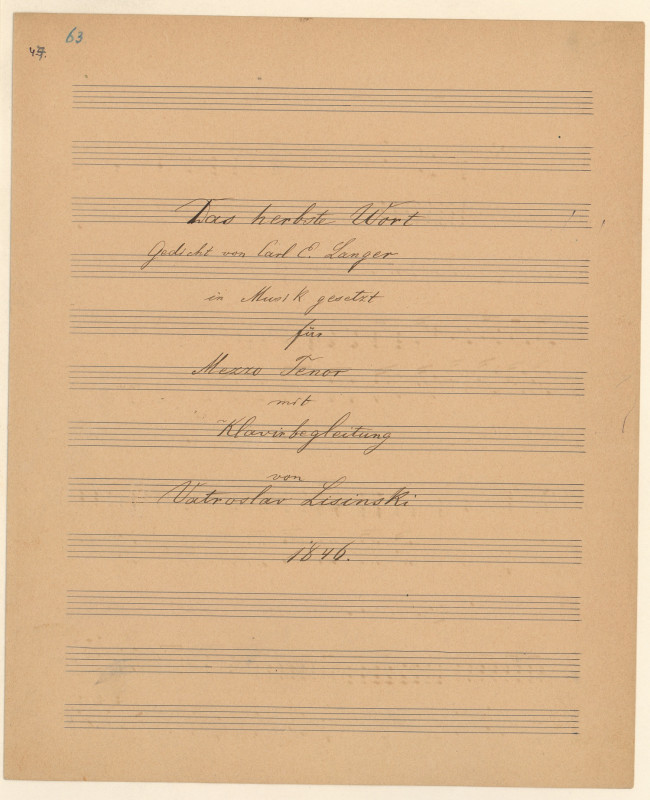 63
Das herbste Wort
Gedicht von Carl E. Langer
in Musik gesetzt
für
Mezzo Tenor
mit
Klavirbegleitung
von
Vatroslav Lisinski
1846.